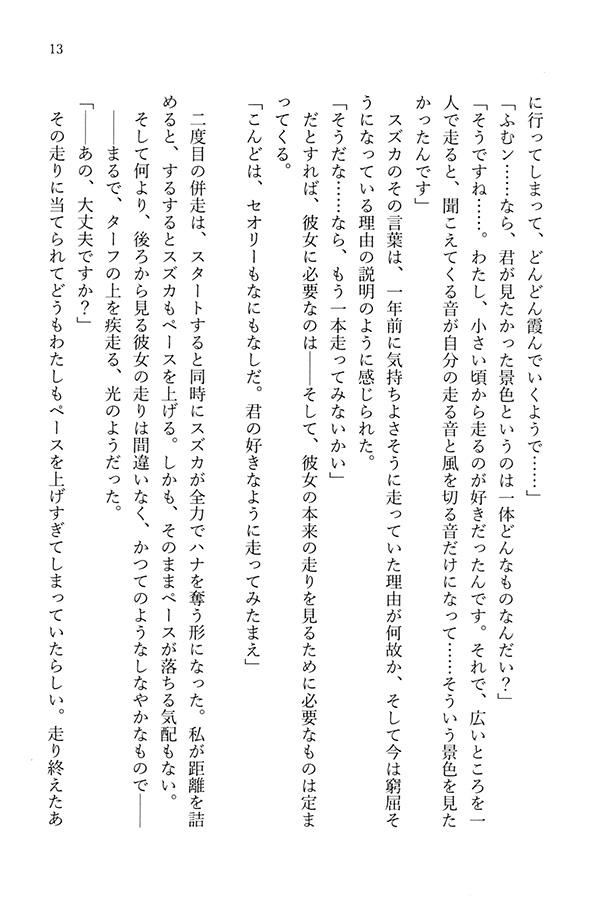 13
に行ってしまって、どんどん霞んでいくようで……」
「ふむン……なら、君が見たかった景色というのは一体どんなものなんだい？」
「そうですね……。わたし、小さい頃から走るのが好きだったんです。それで、広いところを一
人で走ると、聞こえてくる音が自分の走る音と風を切る音だけになって……そういう景色を見た
かったんです」
スズカのその言葉は、一年前に気持ちよさそうに走っていた理由が何故か、そして今は窮屈そ
うになっている理由の説明のように感じられた。
「そうだな……なら、もう一本走ってみないかい」
だとすれば、彼女に必要なのは――そして、彼女の本来の走りを見るために必要なものは定ま
ってくる。
「こんどは、セオリーもなにもなしだ。君の好きなように走ってみたまえ」
二度目の併走は、スタートすると同時にスズカが全力でハナを奪う形になった。私が距離を詰
めると、するするとスズカもペースを上げる。しかも、そのままペースが落ちる気配もない。
そして何より、後ろから見る彼女の走りは間違いなく、かつてのようなしなやかなもので――
――まるで、ターフの上を疾走る、光のようだった。
「――あの、大丈夫ですか？」
その走りに当てられてどうもわたしもペースを上げすぎてしまっていたらしい。走り終えたあ